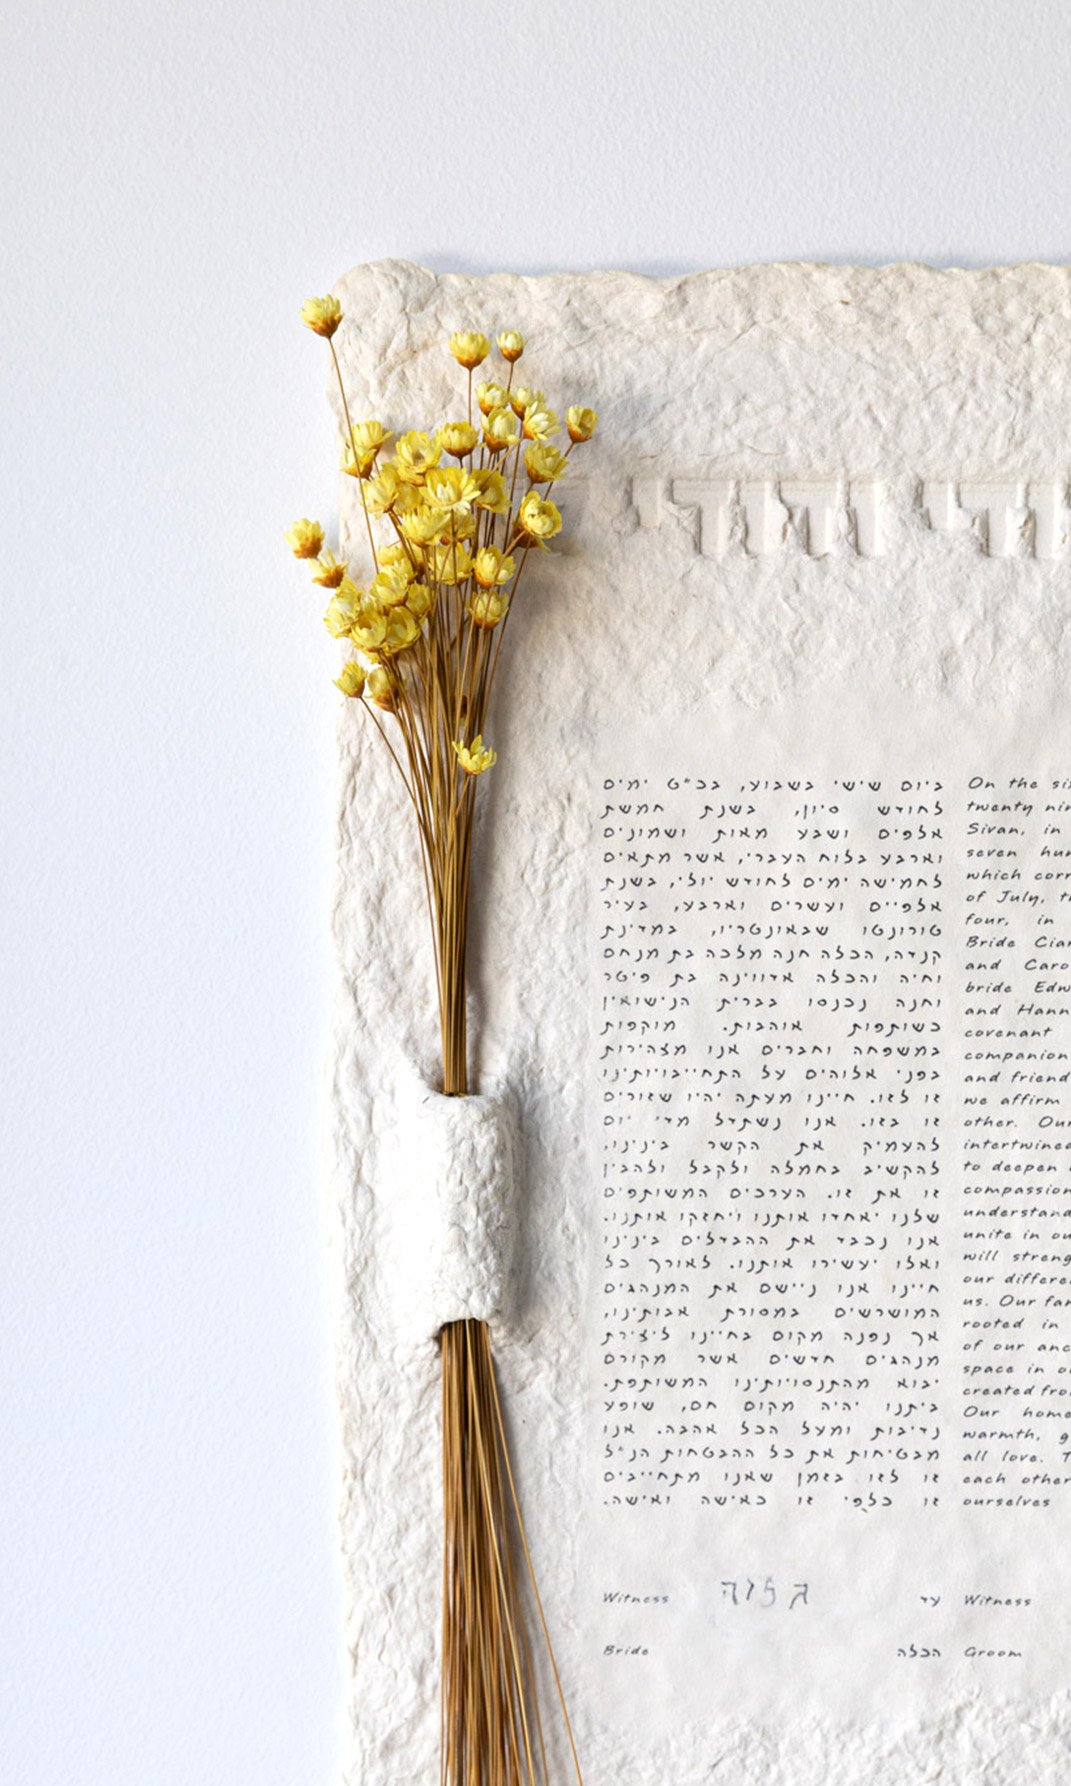 ודודי
ביום שישי בשבוע, בכ"ט ימים
לחודש סיון, בשנת חמשת
אלפים ושבע מאות ושמונים
וארבע בלוח העברי, אשר מתאים
לחמישה ימים לחודש יולי, בשנת
אלפיים ועשרים וארבע, בעיר
טורונטו שבאונטריו, במדינת
קנדה, הכלה חנה מלכה בת מנחם
וחיה והכלה אדווינה בת פיטר
וחנה נכנסו בברית הנישואין
כשותפות אוהבות. מוקפות
במשפחה וחברים אנו מצהירות
בפני אלוהים על התחייבויותינו
זו לזו. חיינו מעתה יהיו שזורים
זו בזו. אנו נשתדל מדי יום
להעמיק את הקשר בינינו,
להקשיב בחמלה ולקבל ולהבין
זו את זו. הערכים המשותפים
שלנו יאחדו אותנו ויחזקו אותנו.
אנו נכבד את ההבדלים בינינו
ואלו יעשירו אותנו. לאורך כל
חיינו אנו ניישם את המנהגים
המושרשים במסורת אבותינו,
אך נפנה מקום בחיינו ליצירת
מנהגים חדשים אשר מקורם
יבוא מהתנסויותינו המשותפת.
ביתנו יהיה מקום חם, שופע
נדיבות ומעל הכל אהבה. אנו
מבטיחות את כל ההבטחות הנ"ל
זו לזו בזמן שאנו מתחייבים
זו כלפי זו כאישה ואישה.
On the
twenty
Sivan, in
seven
which
of July,
four, in
Bride
and
bride
and
covenant
companion
and friend
we affirm
other. Our
intertwined
to deepen
compassion
understand
unite in our
will
our
us. Our
rooted in
of our
space in
created
Our home
warmth,
all love.
each other
ourselves
Witness עד Witness
Bride הכלה Groom